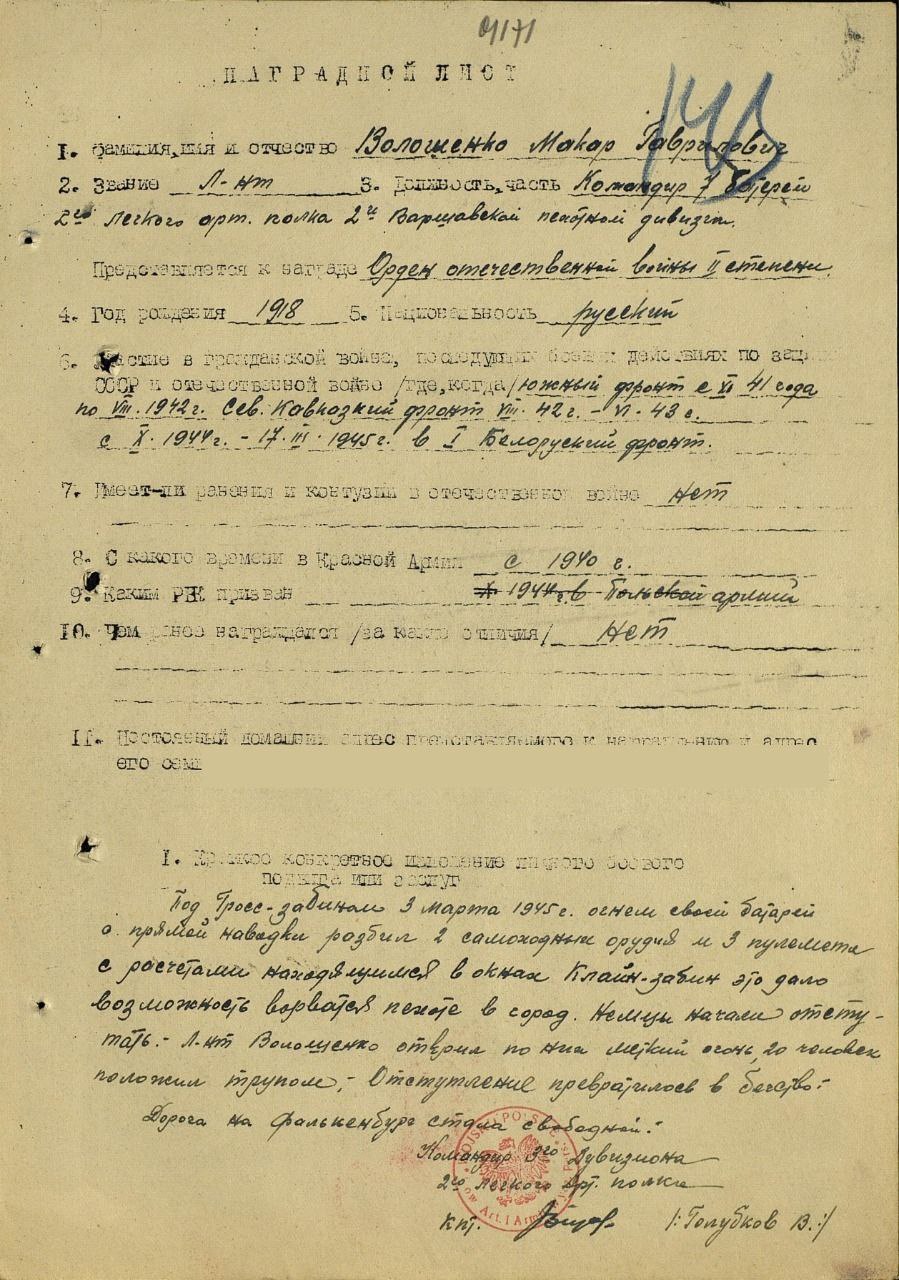 НАГРАДНОЙ ЛИСТ
1. фамилия, имя и отчество Волошенко Макар Гаврилович
2. Звание Л-нт 3. Должность, часть Командир 7 батерей
2го Легкого арт. полка 2й Варшавской пехотной дивизии.
Представляется к награде Орден отечественной войны II степени.
4. Год рождения 1918 5. Национальность русский
6. Участие в гражданской войне, последующих боевых действиях по защите
СССР и отечественной войне /где, когда/ южный фронт с XI 41 года
по VIII. 1942г. Сев. Кавказкий фронт VIII. 42г. - VI. 43 г.
с X. 1944г. - 17. III. 1945г. в I Белоруский фронт.
7. Имеет-ли ранения и контузии в отечественной войне нет
8. С какого времени в Красной Армии с 1940 г.
9. Каким РВК призван X 1944г. в Польской армий
10. Чем ранее награждался /за какие отличия/ нет
11. Постоянный домашний адрес представляемого к награждению и адрес
его семьи
I. Краткое конкретное изложение личного боевого
подвига или заслуг
Под Гросс-забином 3 марта 1945г. огнем своей батарей
с прямой наводки розбил 2 самоходных орудия и 3 пулемета
с расчетами находящимся в окнах Клайн-забин это дало
возможность ворватся пехоте в город. Немцы начали отсту-
пать. - Л-нт Волошенко открил по них меткий огонь, 20 человек
положил трупом, - Отступление превратилось в бегство. -
Дорога на Фалькенбург стала свободной. -
Командир 3го Дивизиона
2го Легкого Арт. полка
кпт. /: Голубков В. :/